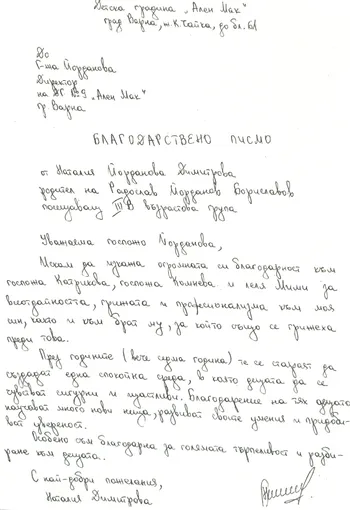 Детска градина „Ален Мак“
град Варна, ж.к. Чайка, до бл. 61
До
Г-жа Йорданова
Директор
на ДГ №9 „Ален Мак“
гр. Варна
БЛАГОДАРСТВЕНО ПИСМО
от Наталия Йорданова Димитрова
родител на Радослав Йорданов Бориславов
посещаващ III В възрастова група
Уважаема госпожо Йорданова,
Искам да изкажа огромната си благодарност към
госпожа Катрикова, госпожа и леля Мими за
всеотдайността, грижата и професионализма към моя
син, както и към брат му, за който също се грижеха
преди това.
През годините (вече седма година) те се стараят да
създадат една спокойна среда, в която децата да се
чувстват сигурни и щастливи. Благодарение на тях децата
научават много нови неща, развиват своите умения и придоби-
ват увереност.
Особено съм благодарна за голямата търпеливост и разби-
ране към децата.
С най-добри пожелания,
Наталия Димитрова